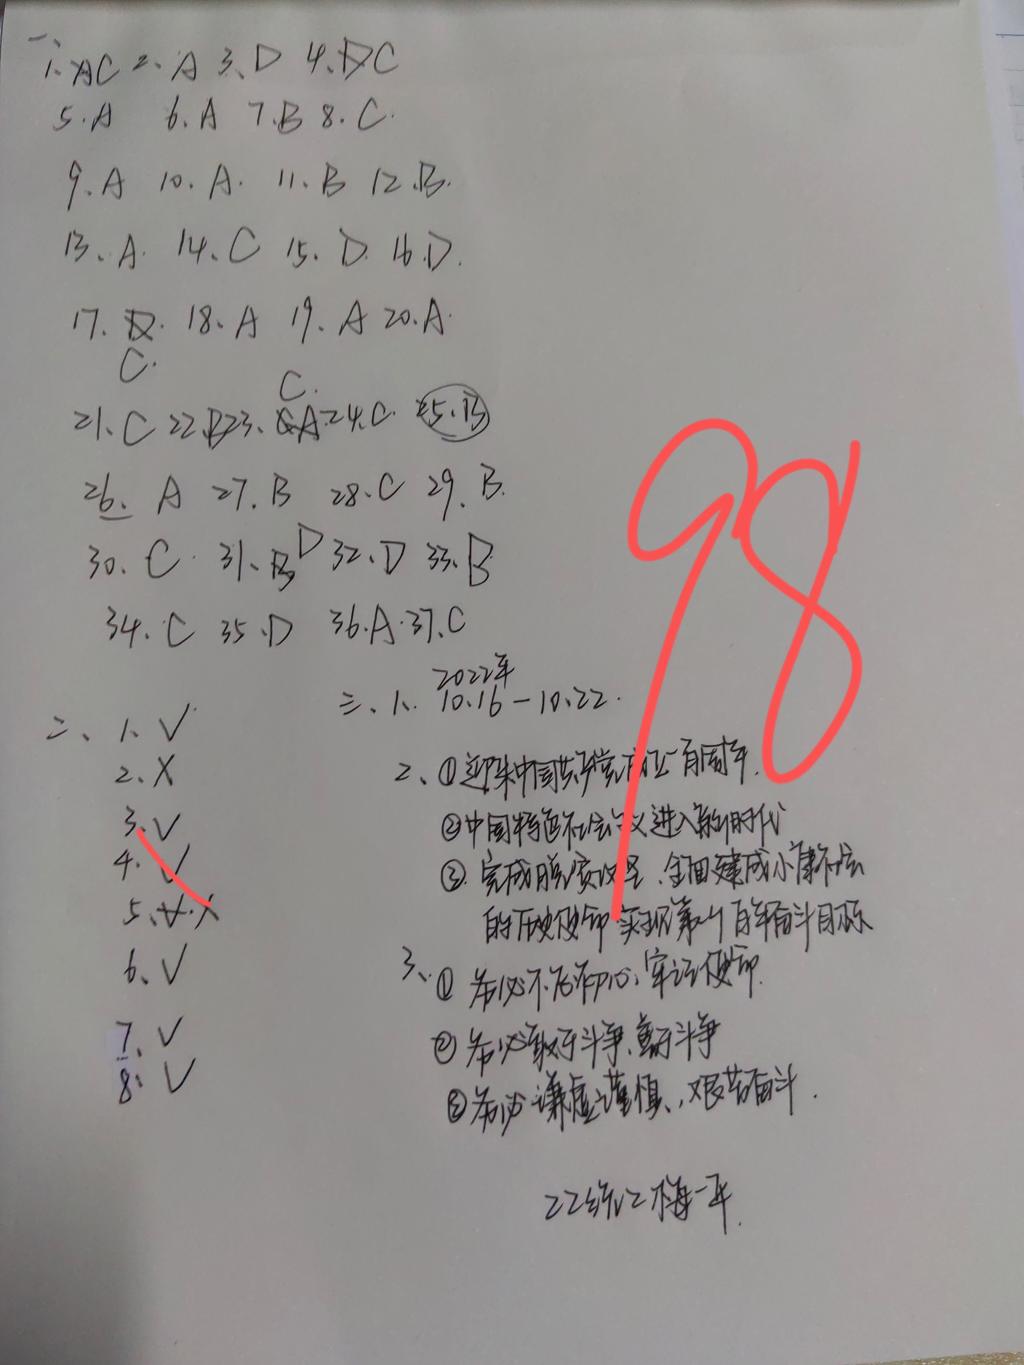 一、
1、AC 2、A 3、D 4、DC
5.A 6.A 7.B 8.C.
9、A 10、A. 11、B 12、B.
13、A. 14、C 15、D. 16、D.
17、D. 18、A 19、A 20、A.
C.
C.
21、C 22、B 23、CA 24、C. 25、B
26、A 27、B 28、C 29、B.
30、C. 31、B D 32、D 33、B
34、C 35、D 36、A. 37、C
98
二、1、√
2、X
3、√
4、√
5、√.X
6、√
7、√
8、√
2022年
三、1、10.16-10.22.
2、①迎来中国共产党成立一百周年.
②中国特色社会主义进入新时代
③完成脱贫攻坚、全面建成小康社会
的历史使命实现第一个百年奋斗目标
3、①务必不忘初心、牢记使命
②务必敢于斗争、善于斗争
③务必谦虚谨慎、艰苦奋斗.